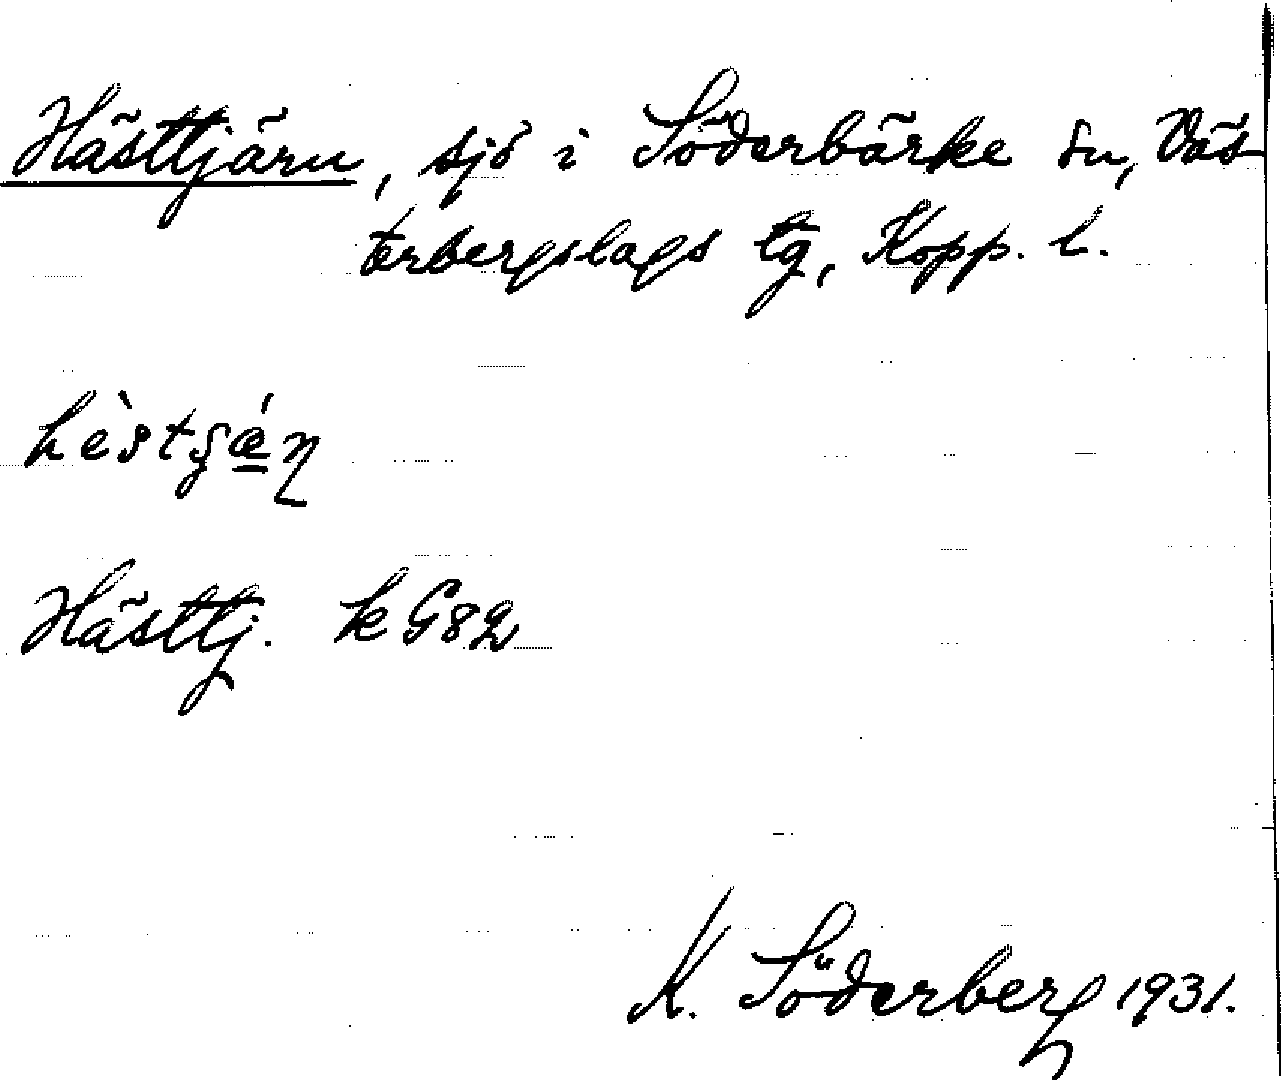 Hästtjärn, sjö i Söderbärke sn, Väs-
terbergslags tg, Kopp. l.
hèstʂǽɳ
Hästtj. k G82
K. Söderberg 1931.